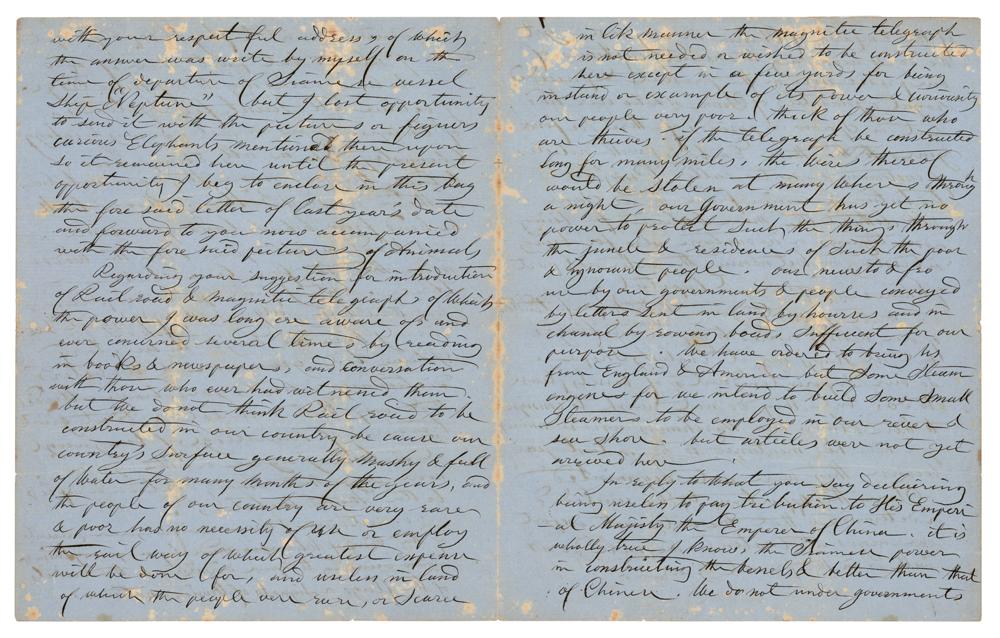 with your respectful address of which
the answer was write by myself on the
time of departure of Siamese vessel
Ship "Neptune" but I lost opportunity
to send it with the pictures or figuers
curious Elephants mentioned there upon
so it remained here until the present
opportunity I beg to enclose in this bag
the fore said letter of last year's date
and forward to you now accompanied
with the fore said picture of Animals
Regarding your suggestion for introduction
of Rail road & magnetic telegraph of which
the power I was long ere aware of and
ever concerned several times by reading
in books & newspapers, and conversation
with those who ever had witnessed them.
but We do not think Rail road to be
constructed in our country be cause our
country's surface generally mushy & full
of water for many months of the years, and
the people of our country are very rare
& poor has no necessity of use or employ
the rail way of which greatest expense
will be done for, and useless in land
of which the people were rare, or scarce
in lik manner the magnetic telegraph
is not needed or wished to be constructed
here except in a few yards for being
in stand or example of its power & curiousity
our people very poor. thick of them who
are thieves if the telegraph be constructed
long for many miles, the wires thereof
would be stolen at many wheres through
a night, our Government has yet no
power to protect such the things through
the jungle & residences of such the poor
& ignorant people. our news to & fro
ur by our governments & people conveyed
by letters sent in land by hourses and in
chanal by rowing boads, sufficent for our
purpose. We have ordered to bring his
from England & America but some steam
engines for we intend to build some small
steamers to be employed in our river &
sea shore. but articles were not yet
arrived here.
In reply to what you say declairing
being useless to pay tribution to His Emperi-
al Majisty the Emperor of China. it is
wholly true I know, the Siamese power
in constructing the vessels & better than that
of Chinese. We do not under governments